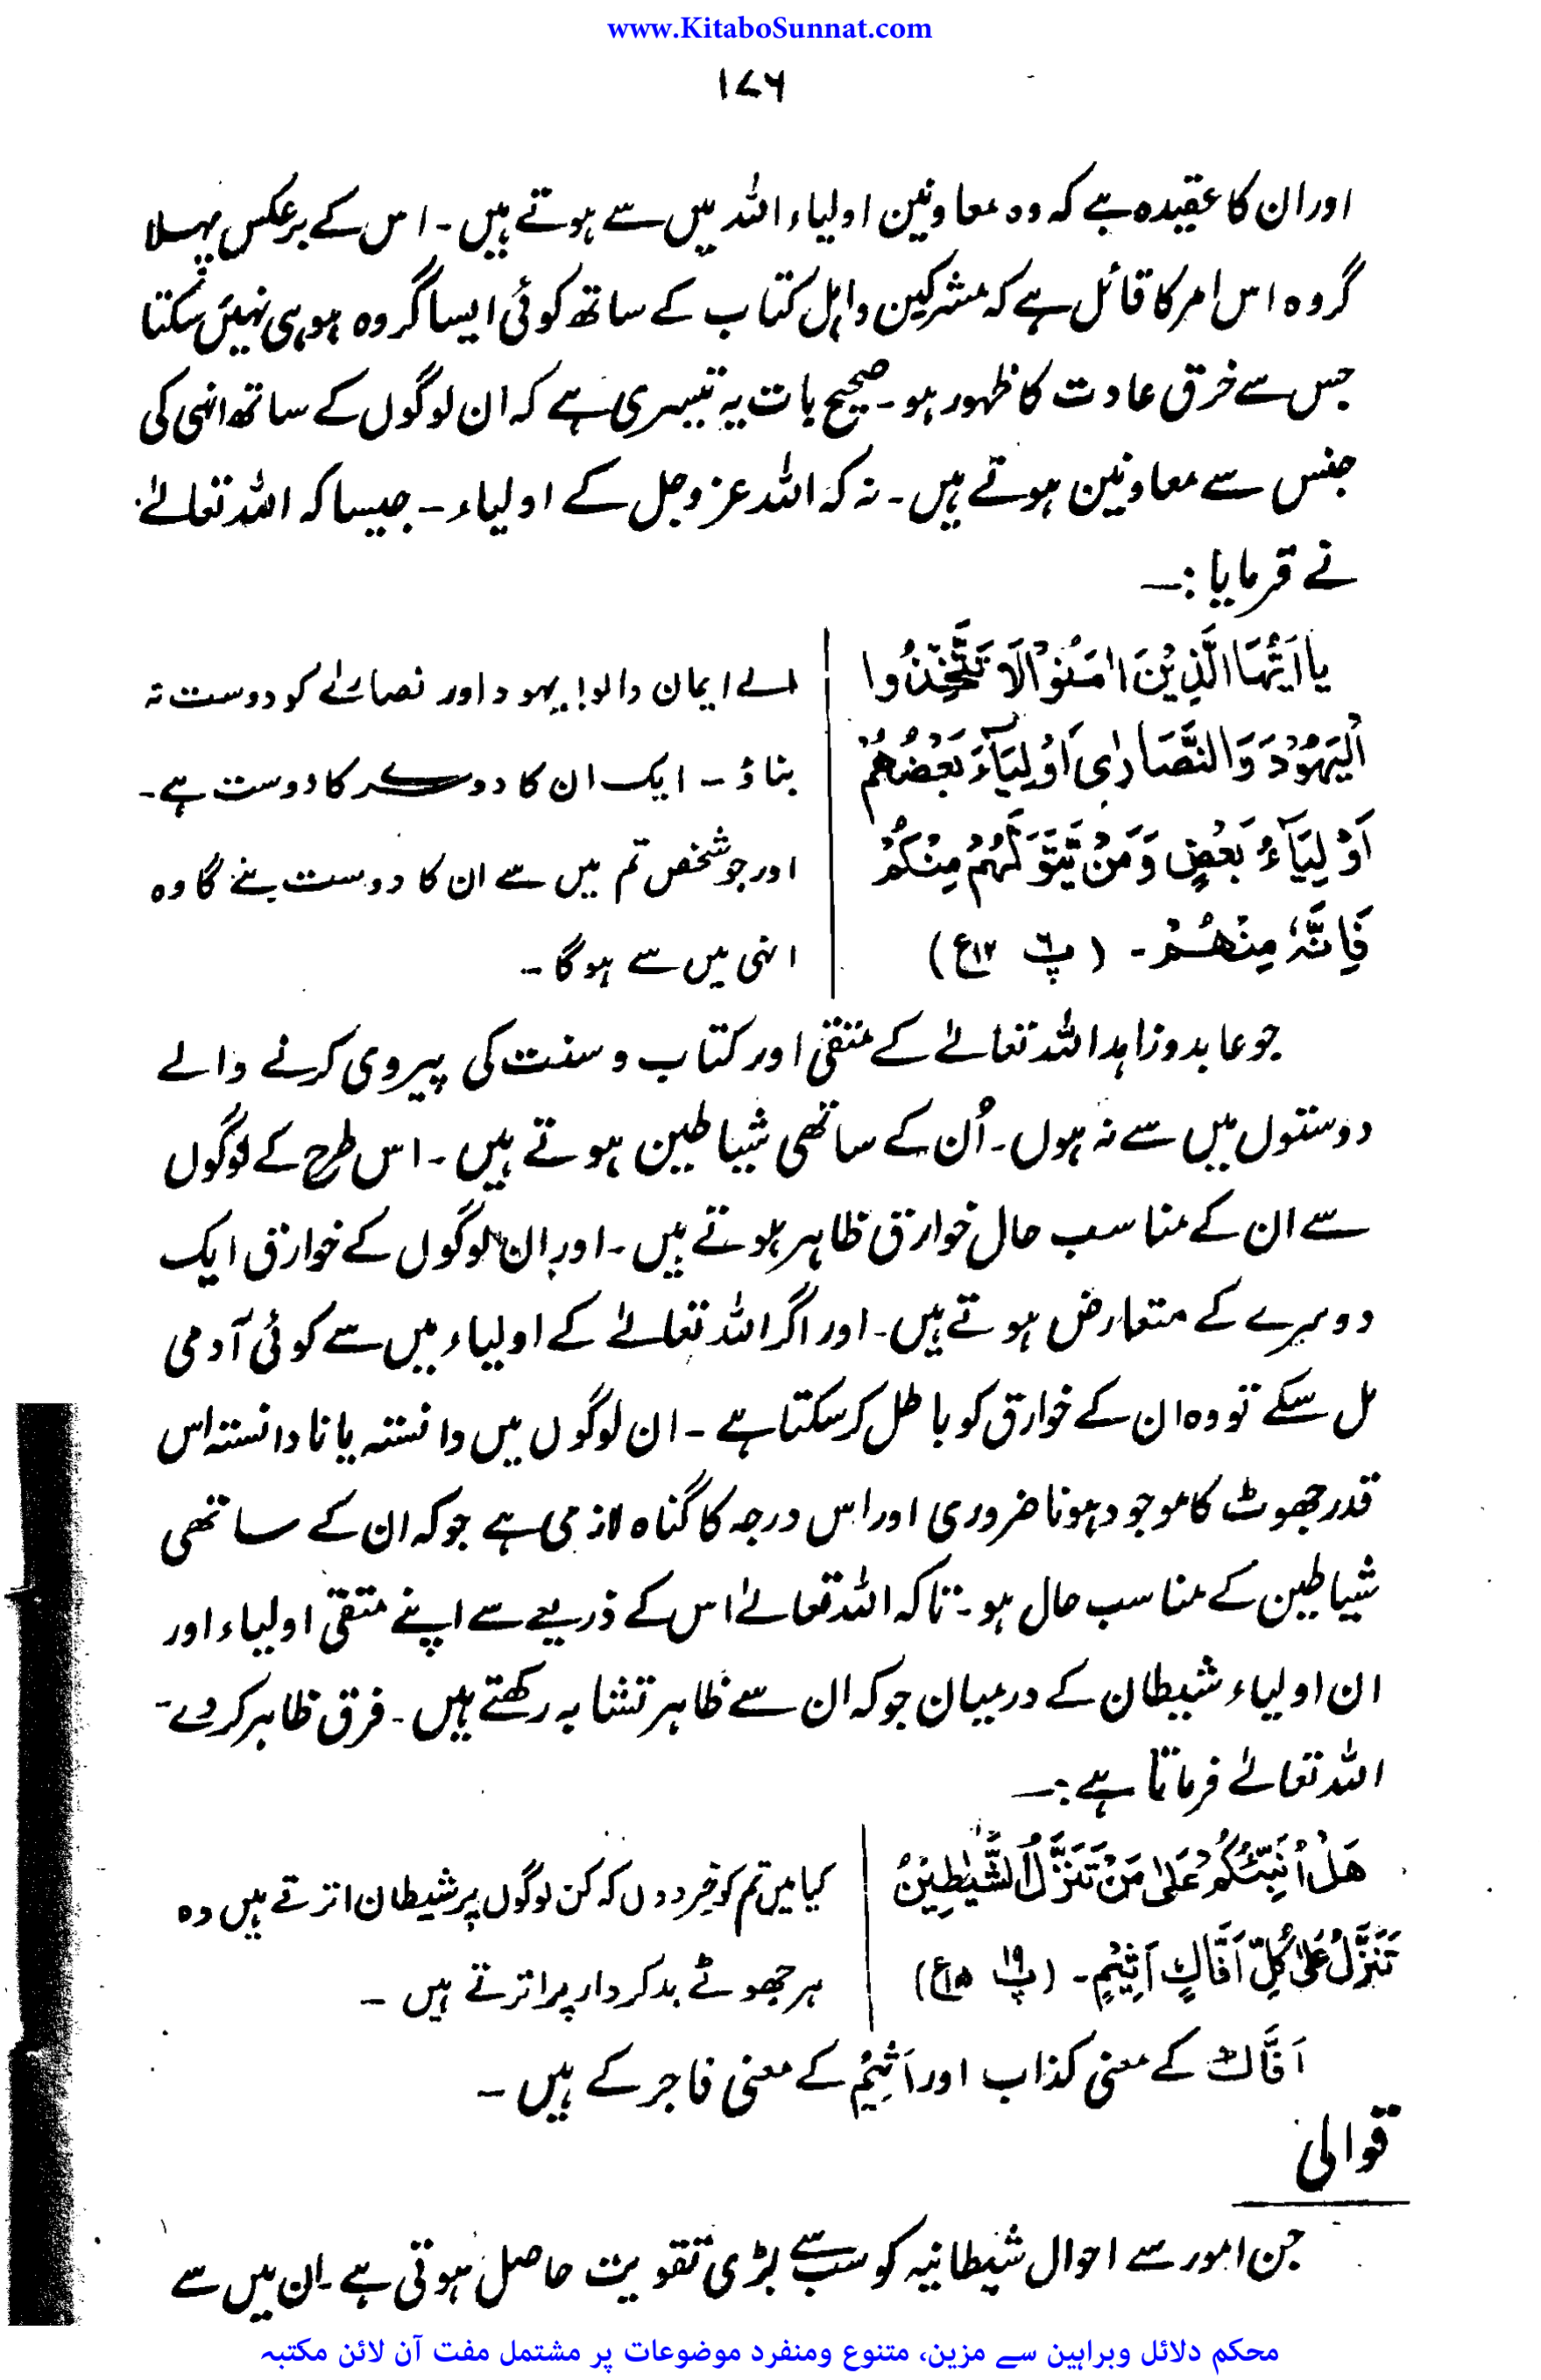 www.KitaboSunnat.com
۱۷۶
اور ان کا عقیدہ ہے کہ وہ معاونین اولیاء اللہ میں سے ہوتے ہیں۔ اس کے برعکس پہلا
گروہ اس امر کا قائل ہے کہ مشرکین واہل کتاب کے ساتھ کوئی ایسا گروہ ہو ہی نہیں سکتا
جس سے خرق عادت کا ظہور ہو۔ صحیح بات یہ تیسری ہے کہ ان لوگوں کے ساتھ انہی کی
جنس سے معاونین ہوتے ہیں۔ نہ کہ اللہ عز وجل کے اولیاء۔ جیسا کہ اللہ تعالےٰ
نے فرمایا :—
یَا اَیُّہَا الَّذِیْنَ اٰمَنُوْا لَا تَتَّخِذُوا
الْیَہُوْدَ وَالنَّصَارٰی اَوْلِیَآءَ بَعْضُھُمْ
اَوْلِیَآءُ بَعْضٍ وَمَنْ یَّتَوَلَّہُمْ مِنْکُمْ
فَاِنَّہٗ مِنْھُمْ۔ (پ ۶ ۱۲ع)
اے ایمان والو! یہود اور نصارےٰ کو دوست نہ
بناؤ ۔ ایک ان کا دوسرے کا دوست ہے۔
اور جو شخص تم میں سے ان کا دوست بنے گا وہ
انہی میں سے ہوگا ۔
جو عابد و زاہد اللہ تعالےٰ کے متقی اور کتاب و سنت کی پیروی کرنے والے
دوستوں میں سے نہ ہوں۔ اُن کے ساتھی شیاطین ہوتے ہیں ۔ اس طرح کے لوگوں
سے ان کے مناسب حال خوارق ظاہر ہوتے ہیں ۔ اور ان لوگوں کے خوارق ایک
دوسرے کے متعارض ہوتے ہیں۔ اور اگر اللہ تعالےٰ کے اولیاء میں سے کوئی آدمی
مل سکے تو وہ ان کے خوارق کو باطل کر سکتا ہے ۔ ان لوگوں میں دانستہ یا نادانستہ اس
قدر جھوٹ کا موجود ہونا ضروری اور اس درجہ کا گناہ لازمی ہے جو کہ ان کے ساتھی
شیاطین کے مناسب حال ہو۔ تاکہ اللہ تعالےٰ اس کے ذریعے سے اپنے متقی اولیاء اور
ان اولیاء شیطان کے درمیان جو کہ ان سے ظاہر تشابہ رکھتے ہیں ۔ فرق ظاہر کر دے۔
اللہ تعالےٰ فرماتا ہے :—
ھَلْ اُنَبِّئُکُمْ عَلٰی مَنْ تَنَزَّلُ الشَّیٰطِیْنُ
تَنَزَّلُ عَلٰی کُلِّ اَفَّاکٍ اَثِیْمٍ۔ (پ ۱۹ ۱۵ع)
کیا میں تم کو خبر دوں کہ کن لوگوں پر شیطان اترتے ہیں وہ
ہر جھوٹے بدکردار پر اترتے ہیں ۔
اَفَّاک کے معنی کذاب اور اَثِیْمٌ کے معنی فاجر کے ہیں ۔
قوالی
جن امور سے احوال شیطانیہ کو سب سے بڑی تقویت حاصل ہوتی ہے ۔ ان میں سے
محکم دلائل وبراہین سے مزین، متنوع ومنفرد موضوعات پر مشتمل مفت آن لائن مکتبہ